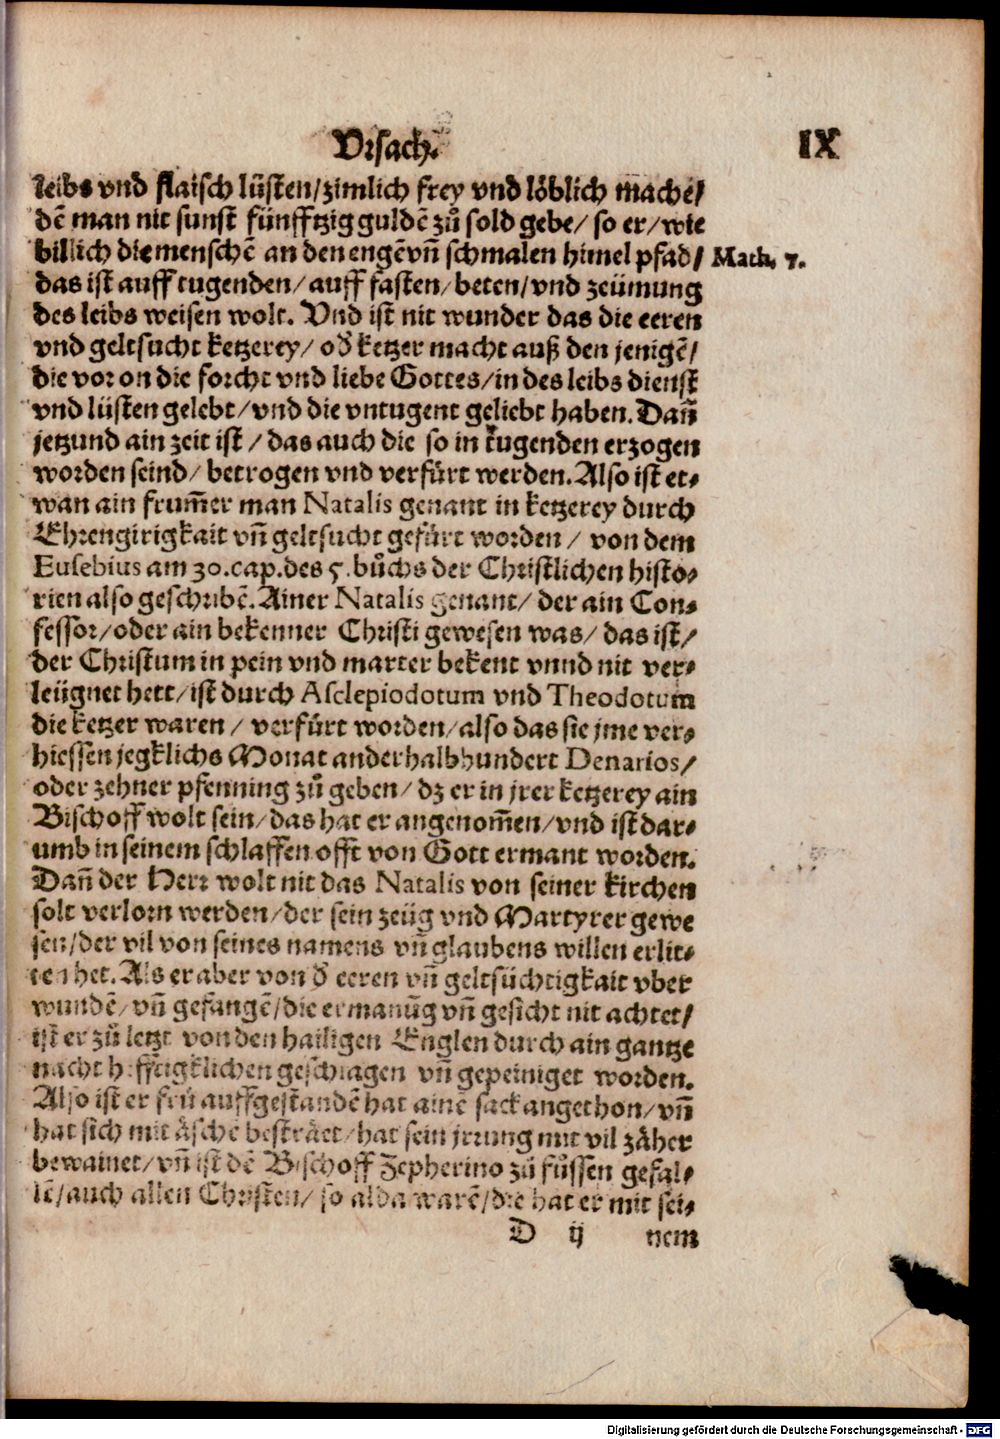 Vrsach.
IX
leibs vnd flaisch lüsten/zimlich frey vnd löblich mache/
dē man nit sunst fünfftzig guldē zů sold gebe/ so er/wie
billich die menschē an den engē vn̄ schmalen himel pfad/
Math. 7.
das ist auff tugenden/ auff fasten/ beten/ vnd zeümung
des leibs weisen wolt. Vnd ist nit wunder das die eeren
vnd geltsucht ketzerey/ od̄ ketzer macht auß den jenigē/
die vor on die forcht vnd liebe Gottes/in des leibs dienst
vnd lüsten gelebt/vnd die vntugent geliebt haben. Dan̄
jetzund ain zeit ist / das auch die so in tugenden erzogen
worden seind/ betrogen vnd verfürt werden. Also ist et⸗
wan ain frum̄er man Natalis genant in ketzerey durch
Ehrengirigkait vn̄ geltsucht gefürt worden / von dem
Eusebius am 30.cap.des 5.bůchs der Christlichen histo⸗
rien also geschribē. Ainer Natalis genant/ der ain Con⸗
fessor/oder ain bekenner Christi gewesen was/ das ist/
der Christum in pein vnd marter bekent vnnd nit ver⸗
leügnet hett/ist durch Asclepiodotum vnd Theodotum
die ketzer waren / verfürt worden/also das sie jme ver⸗
hiessen jegklichs Monat anderhalbhundert Denarios/
oder zehner pfenning zů geben/ dz er in jrer ketzerey ain
Bischoff wolt sein/das hat er angenom̄en/vnd ist dar⸗
umb in seinem schlaffen offt von Gott ermant worden.
Dan̄ der Herr wolt nit das Natalis von seiner kirchen
solt verlorn werden/der sein zeüg vnd Martyrer gewe
sen/der vil von seines namens vn̄ glaubens willen erlit⸗
ten het. Als er aber von d̄ eeren vn̄ geltsüchtigkait vber
wundē/ vn̄ gefangē/die ermanūg vn̄ gesicht nit achtet/
ist er zů letzt von den hailigen Englen durch ain gantze
nacht hefftigklichen geschlagen vn̄ gepeiniget worden.
Also ist er frů auffgestandē hat ainē sack angethon/vn̄
hat sich mit äschē besträet/hat sein jrrung mit vil zäher
bewainet/vn̄ ist dē Bischoff Zepherino zů fůssen gefal⸗
lē/auch allen Christen/ so alda warē/die hat er mit sei⸗
D ij nem
Digitalisierung gefördert durch die Deutsche Forschungsgemeinschaft - DFG